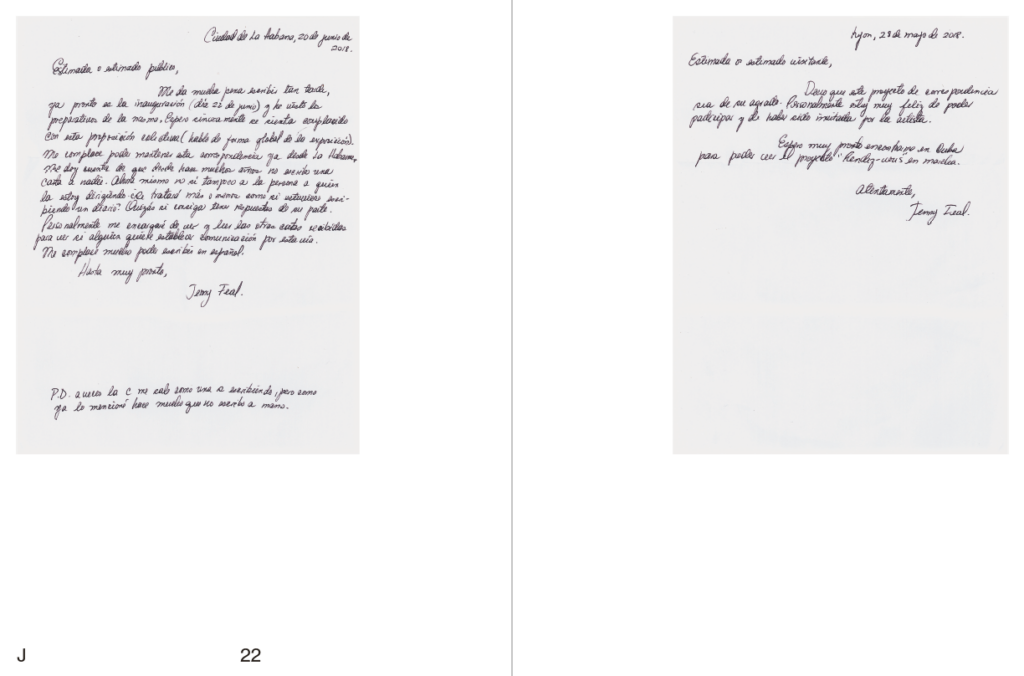 Ciudad de La Habana, 20 de junio de
2018.
Estimada o estimado público,
Me da mucha pena escribir tan tarde,
ya pronto es la inauguración (día 22 de junio) y he visto los
preparativos de la misma. Espero sinceramente se sienta complacido
con esta proposición colectiva (hablo de forma global de la exposición).
Me complace poder mantener esta correspondencia ya desde La Habana,
Me doy cuenta de que desde hace muchos años no escribo una
carta a nadie. Ahora mismo no sé tampoco a la persona a quien
la estoy dirigiendo. Le trataré más o menos como si estuviese escri-
biendo un diario. Quizás si consiga tener respuestas de su parte.
Personalmente me encargaré de ver y leer las otras cartas recibidas
para ver si alguien quiere establecer comunicación por esta vía.
Me complace mucho poder escribir en español.
Hasta muy pronto,
Jenny Feal.
P.D. a veces la c me sale como una s escribiendo, pero como
ya lo mencioné hace mucho que no escribo a mano.
J 22
Lyon, 28 de mayo de 2018.
Estimada o estimado visitante,
Deseo que este proyecto de correspondencia
sea de su agrado. Personalmente estoy muy feliz de poder
participar y de haber sido invitada por la artista.
Espero muy pronto encontrarnos en Cuba
para poder ver el proyecto "Rendez-vous" en marcha.
Atentamente,
Jenny Feal.